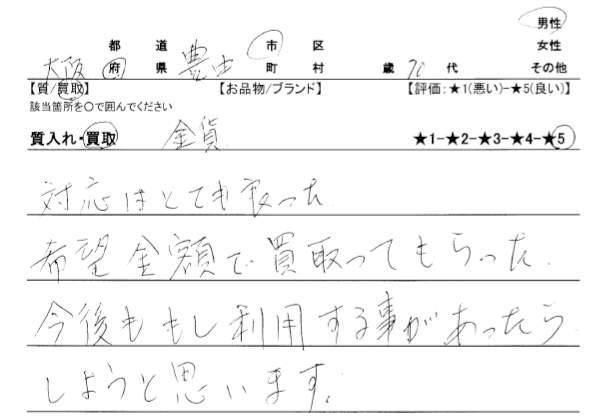 男性
都 道 市 区 女性
大阪 府 県 豊中 町 村 歳 70 代 その他
【質/買取】 【お品物/ブランド】 【評価:★1(悪い)-★5(良い)】
該当箇所を〇で囲んでください
質入れ・買取 金貨 ★1-★2-★3-★4-★5
対応はとても良った
希望金額で買取ってもらった.
今後ももし利用する事があったら
しようと思います.